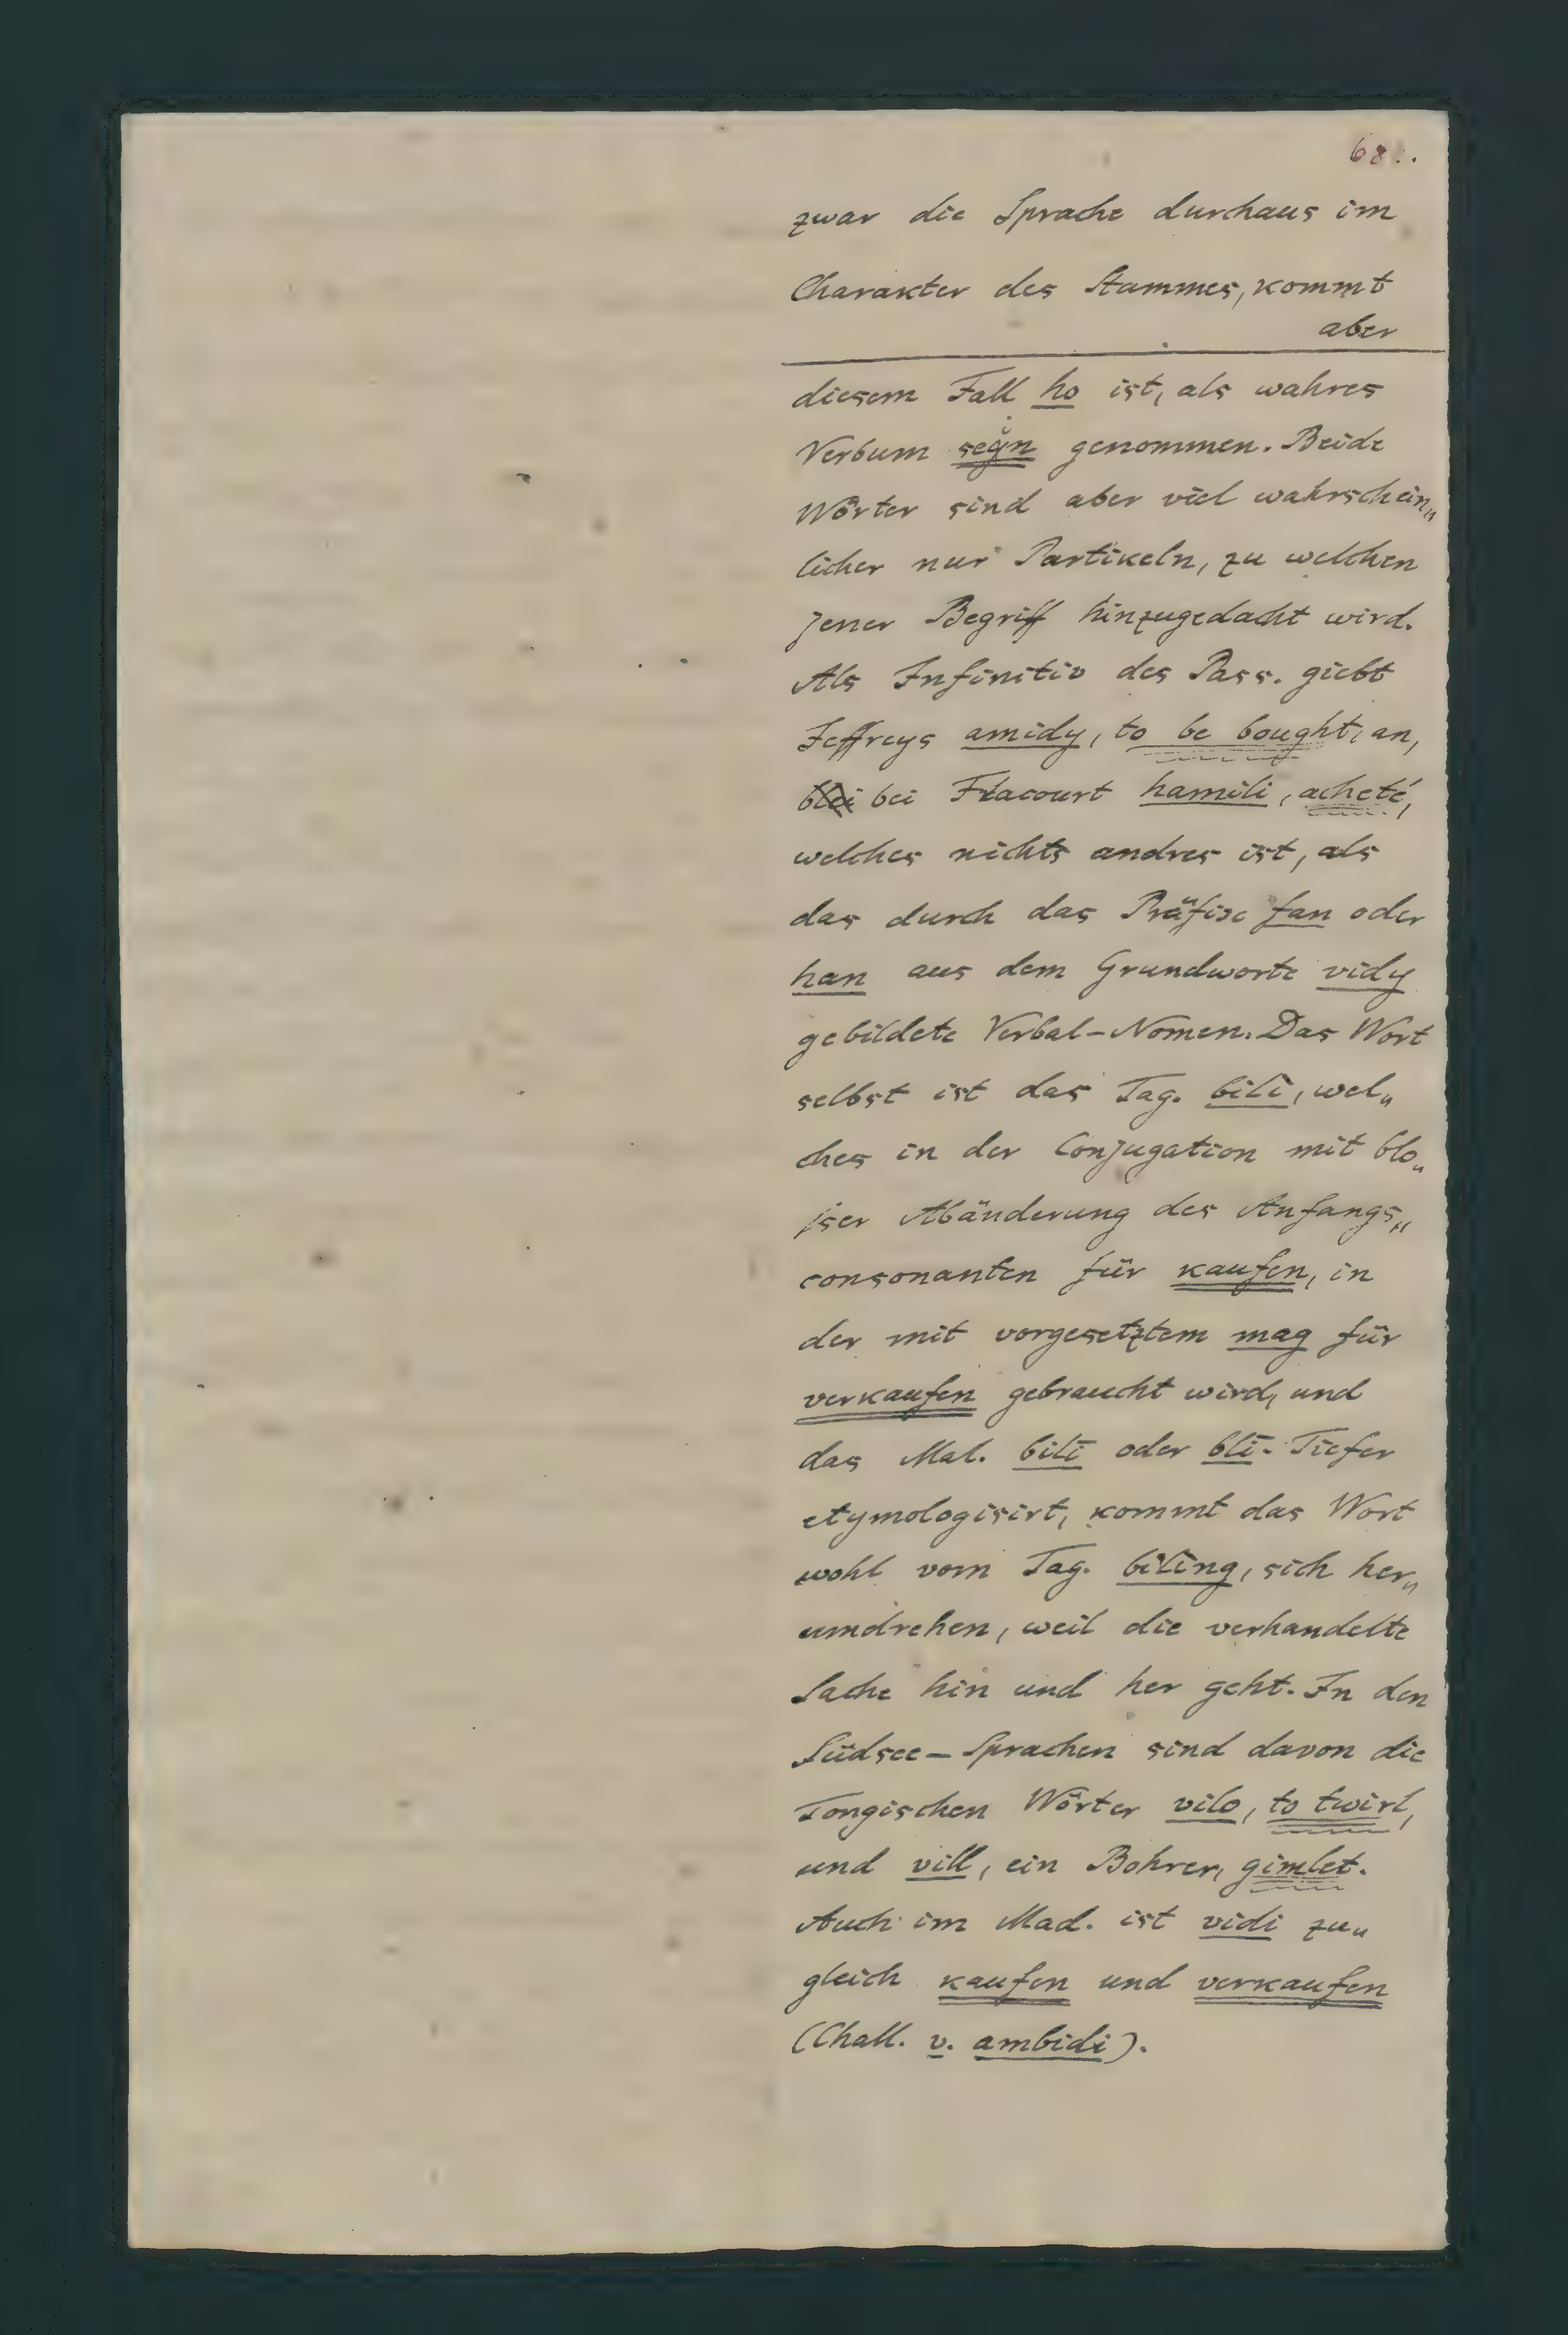 68.
zwar die Sprache durchaus im
Charakter des Stammes, kommt
aber
diesem Fall ho ist, als wahres
Verbum seÿn genommen. Beide
Wörter sind aber viel wahrschein„
licher nur Partikeln, zu welchen
jener Begriff hinzugedacht wird.
Als Infinitiv des Pass. giebt
Jeffreys amidy, to be bought, an,
bei Flacourt hamili, acheté,
welches nichts andres ist, als
das durch das Präfix fan oder
han aus dem Grundworte vidy
gebildete Verbal-Nomen. Das Wort
selbst ist das Tag. bilì, wel„
ches in der Conjugation mit blo„
ſser Abänderung des Anfangs„
consonanten für kaufen, in
der mit vorgesetztem mag für
verkaufen gebraucht wird, und
das Mal. bilī oder blī. Tiefer
etymologisirt, kommt das Wort
wohl vom Tag. biling, sich her„
umdrehen, weil die verhandelte
Sache hin und her geht. In den
Südsee-Sprachen sind davon die
Tongischen Wörter vilo, to twirl,
und vill, ein Bohrer, gimlet.
Auch im Mad. ist vidi zu„
gleich kaufen und verkaufen
(Chall. v. ambidi).